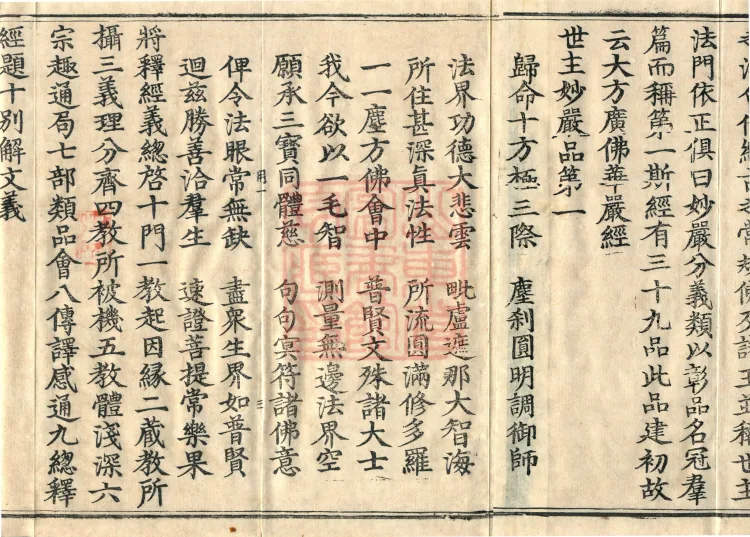 法門依正俱曰妙嚴分義類以彰品名冠羣
篇而稱第一斯經有三十九品此品建初故
云大方廣佛華嚴經
世主妙嚴品第一
歸命十方極三際 塵刹圓明調御師
法界功德大悲雲 毗盧遮那大智海
所住甚深真法性 所流圓滿修多羅
一一塵方佛會中 普賢文殊諸大士
我今欲以一毛智 測量無邊法界空
願承三寶同體慈 句句冥符諸佛意
俾令法眼常無缺 盡衆生界如普賢
迴茲勝善洽羣生 速證菩提常樂果
將釋經義總啓十門一教起因緣二藏教所
攝三義理分齊四教所被機五教體淺深六
宗趣通局七部類品會八傳譯感通九總釋
經題十別解文義